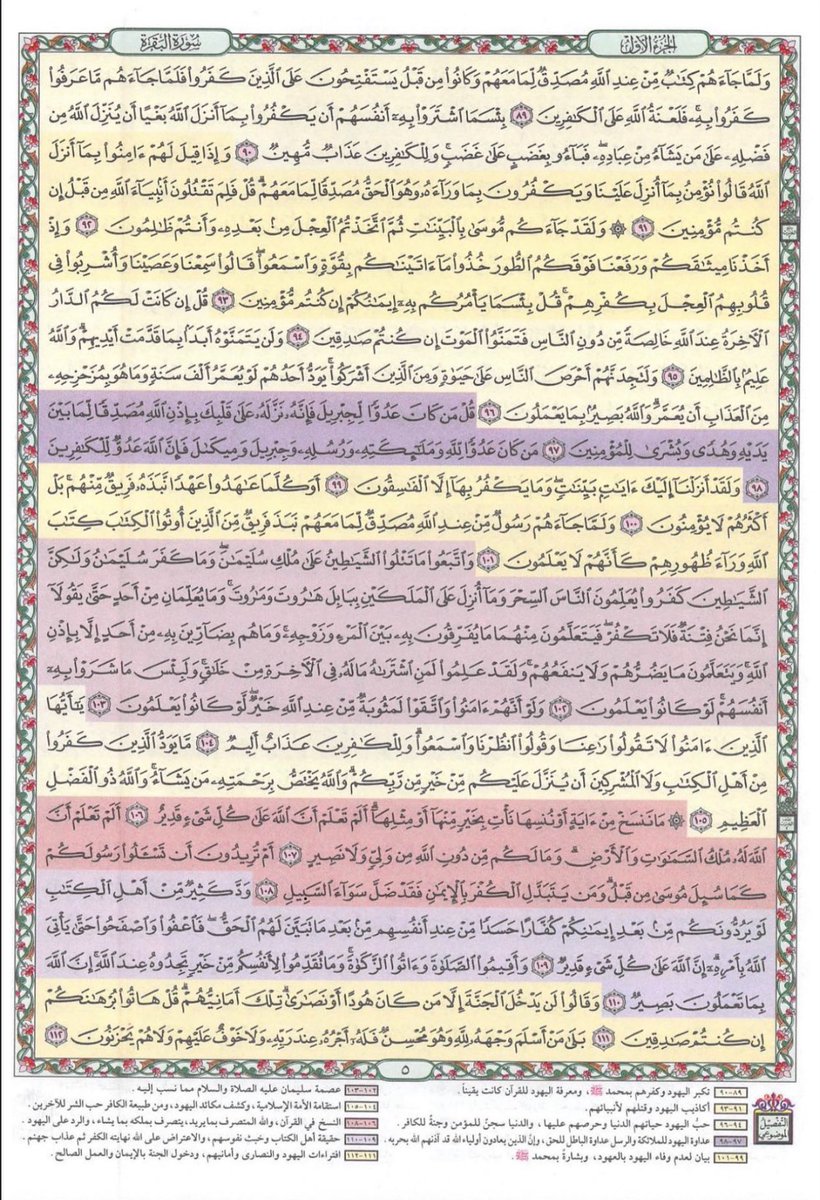 الجزء الأول
سورة البقرة
وَلَمَّا جَآءَهُمْ كِتَٰبٌ مِّنْ عِندِ ٱللَّهِ مُصَدِّقٌ لِّمَا مَعَهُمْ وَكَانُوا۟ مِن قَبْلُ يَسْتَفْتِحُونَ عَلَى ٱلَّذِينَ كَفَرُوا۟ فَلَمَّا جَآءَهُم مَّا عَرَفُوا۟
كَفَرُوا۟ بِهِۦ فَلَعْنَةُ ٱللَّهِ عَلَى ٱلْكَٰفِرِينَ ٨٩ بِئْسَمَا ٱشْتَرَوْا۟ بِهِۦٓ أَنفُسَهُمْ أَن يَكْفُرُوا۟ بِمَآ أَنزَلَ ٱللَّهُ بَغْيًا أَن يُنَزِّلَ ٱللَّهُ مِن
فَضْلِهِۦ عَلَىٰ مَن يَشَآءُ مِنْ عِبَادِهِۦ ۖ فَبَآءُو بِغَضَبٍ عَلَىٰ غَضَبٍ ۚ وَلِلْكَٰفِرِينَ عَذَابٌ مُّهِينٌ ٩٠ وَإِذَا قِيلَ لَهُمْ ءَامِنُوا۟ بِمَآ أَنزَلَ
ٱللَّهُ قَالُوا۟ نُؤْمِنُ بِمَآ أُنزِلَ عَلَيْنَا وَيَكْفُرُونَ بِمَا وَرَآءَهُۥ وَهُوَ ٱلْحَقُّ مُصَدِّقًا لِّمَا مَعَهُمْ ۗ قُلْ فَلِمَ تَقْتُلُونَ أَنۢبِيَآءَ ٱللَّهِ مِن قَبْلُ إِن
كُنتُم مُّؤْمِنِينَ ٩١ ۞ وَلَقَدْ جَآءَكُم مُّوسَىٰ بِٱلْبَيِّنَٰتِ ثُمَّ ٱتَّخَذْتُمُ ٱلْعِجْلَ مِنۢ بَعْدِهِۦ وَأَنتُمْ ظَٰلِمُونَ ٩٢ وَإِذْ
أَخَذْنَا مِيثَٰقَكُمْ وَرَفَعْنَا فَوْقَكُمُ ٱلطُّورَ خُذُوا۟ مَآ ءَاتَيْنَٰكُم بِقُوَّةٍ وَٱسْمَعُوا۟ ۖ قَالُوا۟ سَمِعْنَا وَعَصَيْنَا وَأُشْرِبُوا۟ فِى
قُلُوبِهِمُ ٱلْعِجْلَ بِكُفْرِهِمْ ۚ قُلْ بِئْسَمَا يَأْمُرُكُم بِهِۦٓ إِيمَٰنُكُمْ إِن كُنتُم مُّؤْمِنِينَ ٩٣ قُلْ إِن كَانَتْ لَكُمُ ٱلدَّارُ
ٱلْءَاخِرَةُ عِندَ ٱللَّهِ خَالِصَةً مِّن دُونِ ٱلنَّاسِ فَتَمَنَّوُا۟ ٱلْمَوْتَ إِن كُنتُمْ صَٰدِقِينَ ٩٤ وَلَن يَتَمَنَّوْهُ أَبَدًۢا بِمَا قَدَّمَتْ أَيْدِيهِمْ ۗ وَٱللَّهُ
عَلِيمٌۢ بِٱلظَّٰلِمِينَ ٩٥ وَلَتَجِدَنَّهُمْ أَحْرَصَ ٱلنَّاسِ عَلَىٰ حَيَوٰةٍ وَمِنَ ٱلَّذِينَ أَشْرَكُوا۟ ۚ يَوَدُّ أَحَدُهُمْ لَوْ يُعَمَّرُ أَلْفَ سَنَةٍ وَمَا هُوَ بِمُزَحْزِحِهِۦ
مِنَ ٱلْعَذَابِ أَن يُعَمَّرَ ۗ وَٱللَّهُ بَصِيرٌۢ بِمَا يَعْمَلُونَ ٩٦ قُلْ مَن كَانَ عَدُوًّا لِّجِبْرِيلَ فَإِنَّهُۥ نَزَّلَهُۥ عَلَىٰ قَلْبِكَ بِإِذْنِ ٱللَّهِ مُصَدِّقًا لِّمَا بَيْنَ
يَدَيْهِ وَهُدًى وَبُشْرَىٰ لِلْمُؤْمِنِينَ ٩٧ مَن كَانَ عَدُوًّا لِّلَّهِ وَمَلَٰٓئِكَتِهِۦ وَرُسُلِهِۦ وَجِبْرِيلَ وَمِيكَىٰلَ فَإِنَّ ٱللَّهَ عَدُوٌّ لِّلْكَٰفِرِينَ
٩٨ وَلَقَدْ أَنزَلْنَآ إِلَيْكَ ءَايَٰتٍۭ بَيِّنَٰتٍ ۖ وَمَا يَكْفُرُ بِهَآ إِلَّا ٱلْفَٰسِقُونَ ٩٩ أَوَكُلَّمَا عَٰهَدُوا۟ عَهْدًا نَّبَذَهُۥ فَرِيقٌ مِّنْهُم ۚ بَلْ
أَكْثَرُهُمْ لَا يُؤْمِنُونَ ١٠٠ وَلَمَّا جَآءَهُمْ رَسُولٌ مِّنْ عِندِ ٱللَّهِ مُصَدِّقٌ لِّمَا مَعَهُمْ نَبَذَ فَرِيقٌ مِّنَ ٱلَّذِينَ أُوتُوا۟ ٱلْكِتَٰبَ كِتَٰبَ
ٱللَّهِ وَرَآءَ ظُهُورِهِمْ كَأَنَّهُمْ لَا يَعْلَمُونَ ١٠١ وَٱتَّبَعُوا۟ مَا تَتْلُوا۟ ٱلشَّيَٰطِينُ عَلَىٰ مُلْكِ سُلَيْمَٰنَ ۖ وَمَا كَفَرَ سُلَيْمَٰنُ وَلَٰكِنَّ
ٱلشَّيَٰطِينَ كَفَرُوا۟ يُعَلِّمُونَ ٱلنَّاسَ ٱلسِّحْرَ وَمَآ أُنزِلَ عَلَى ٱلْمَلَكَيْنِ بِبَابِلَ هَٰرُوتَ وَمَٰرُوتَ ۚ وَمَا يُعَلِّمَانِ مِنْ أَحَدٍ حَتَّىٰ يَقُولَآ
إِنَّمَا نَحْنُ فِتْنَةٌ فَلَا تَكْفُرْ ۖ فَيَتَعَلَّمُونَ مِنْهُمَا مَا يُفَرِّقُونَ بِهِۦ بَيْنَ ٱلْمَرْءِ وَزَوْجِهِۦ ۚ وَمَا هُم بِضَآرِّينَ بِهِۦ مِنْ أَحَدٍ إِلَّا بِإِذْنِ
ٱللَّهِ ۚ وَيَتَعَلَّمُونَ مَا يَضُرُّهُمْ وَلَا يَنفَعُهُمْ ۚ وَلَقَدْ عَلِمُوا۟ لَمَنِ ٱشْتَرَىٰهُ مَا لَهُۥ فِى ٱلْءَاخِرَةِ مِنْ خَلَٰقٍ ۚ وَلَبِئْسَ مَا شَرَوْا۟ بِهِۦٓ
أَنفُسَهُمْ ۚ لَوْ كَانُوا۟ يَعْلَمُونَ ١٠٢ وَلَوْ أَنَّهُمْ ءَامَنُوا۟ وَٱتَّقَوْا۟ لَمَثُوبَةٌ مِّنْ عِندِ ٱللَّهِ خَيْرٌ ۖ لَّوْ كَانُوا۟ يَعْلَمُونَ ١٠٣ يَٰٓأَيُّهَا
ٱلَّذِينَ ءَامَنُوا۟ لَا تَقُولُوا۟ رَٰعِنَا وَقُولُوا۟ ٱنظُرْنَا وَٱسْمَعُوا۟ ۗ وَلِلْكَٰفِرِينَ عَذَابٌ أَلِيمٌ ١٠٤ مَّا يَوَدُّ ٱلَّذِينَ كَفَرُوا۟
مِنْ أَهْلِ ٱلْكِتَٰبِ وَلَا ٱلْمُشْرِكِينَ أَن يُنَزَّلَ عَلَيْكُم مِّنْ خَيْرٍ مِّن رَّبِّكُمْ ۗ وَٱللَّهُ يَخْتَصُّ بِرَحْمَتِهِۦ مَن يَشَآءُ ۚ وَٱللَّهُ ذُو ٱلْفَضْلِ
ٱلْعَظِيمِ ١٠٥ ۞ مَا نَنسَخْ مِنْ ءَايَةٍ أَوْ نُنسِهَا نَأْتِ بِخَيْرٍ مِّنْهَآ أَوْ مِثْلِهَآ ۗ أَلَمْ تَعْلَمْ أَنَّ ٱللَّهَ عَلَىٰ كُلِّ شَىْءٍ قَدِيرٌ ١٠٦ أَلَمْ تَعْلَمْ أَنَّ
ٱللَّهَ لَهُۥ مُلْكُ ٱلسَّمَٰوَٰتِ وَٱلْأَرْضِ ۗ وَمَا لَكُم مِّن دُونِ ٱللَّهِ مِن وَلِىٍّ وَلَا نَصِيرٍ ١٠٧ أَمْ تُرِيدُونَ أَن تَسْـَٔلُوا۟ رَسُولَكُمْ
كَمَا سُئِلَ مُوسَىٰ مِن قَبْلُ ۗ وَمَن يَتَبَدَّلِ ٱلْكُفْرَ بِٱلْإِيمَٰنِ فَقَدْ ضَلَّ سَوَآءَ ٱلسَّبِيلِ ١٠٨ وَدَّ كَثِيرٌ مِّنْ أَهْلِ ٱلْكِتَٰبِ
لَوْ يَرُدُّونَكُم مِّنۢ بَعْدِ إِيمَٰنِكُمْ كُفَّارًا حَسَدًا مِّنْ عِندِ أَنفُسِهِم مِّنۢ بَعْدِ مَا تَبَيَّنَ لَهُمُ ٱلْحَقُّ ۖ فَٱعْفُوا۟ وَٱصْفَحُوا۟ حَتَّىٰ يَأْتِىَ
ٱللَّهُ بِأَمْرِهِۦٓ ۗ إِنَّ ٱللَّهَ عَلَىٰ كُلِّ شَىْءٍ قَدِيرٌ ١٠٩ وَأَقِيمُوا۟ ٱلصَّلَوٰةَ وَءَاتُوا۟ ٱلزَّكَوٰةَ ۚ وَمَا تُقَدِّمُوا۟ لِأَنفُسِكُم مِّنْ خَيْرٍ تَجِدُوهُ عِندَ ٱللَّهِ ۗ إِنَّ ٱللَّهَ
بِمَا تَعْمَلُونَ بَصِيرٌ ١١٠ وَقَالُوا۟ لَن يَدْخُلَ ٱلْجَنَّةَ إِلَّا مَن كَانَ هُودًا أَوْ نَصَٰرَىٰ ۗ تِلْكَ أَمَانِيُّهُمْ ۗ قُلْ هَاتُوا۟ بُرْهَٰنَكُمْ
إِن كُنتُمْ صَٰدِقِينَ ١١١ بَلَىٰ مَنْ أَسْلَمَ وَجْهَهُۥ لِلَّهِ وَهُوَ مُحْسِنٌ فَلَهُۥٓ أَجْرُهُۥ عِندَ رَبِّهِۦ وَلَا خَوْفٌ عَلَيْهِمْ وَلَا هُمْ يَحْزَنُونَ ١١٢
٥
التفصيل الموضوعي
٨٩-٩٠ تكبر اليهود وكفرهم بمحمد ﷺ، ومعرفة اليهود للقرآن كانت يقيناً.
٩١-٩٣ أكاذيب اليهود وقتلهم لأنبيائهم.
٩٤-٩٦ حبُّ اليهود حياتهم الدنيا وحرصهم عليها، والدنيا سجنٌ للمؤمن وجنةٌ للكافر.
٩٧-٩٨ عداوة اليهود للملائكة والرسل عداوة الباطل للحق، وإنّ الذين يعادون أولياء الله قد آذنهم الله بحربه.
٩٩-١٠١ بيان لعدم وفاء اليهود بالعهود، وبشارةٌ بمحمد ﷺ.
١٠٢-١٠٣ عصمة سليمان عليه الصلاة والسلام مما نسب إليه.
١٠٤-١٠٥ استقامة الأمة الإسلامية، وكشف مكائد اليهود، ومن طبيعة الكافر حب الشر للآخرين.
١٠٦-١٠٨ النسخ في القرآن، والله المتصرف بما يريد، يتصرف بملكه بما يشاء، والرد على اليهود.
١٠٩-١١٠ حقيقة أهل الكتاب وخبث نفوسهم، والاعتراض على الله نهايته الكفر ثم عذاب جهنم.
١١١-١١٢ افتراءات اليهود والنصارى وأمانيهم، ودخول الجنة بالإيمان والعمل الصالح.